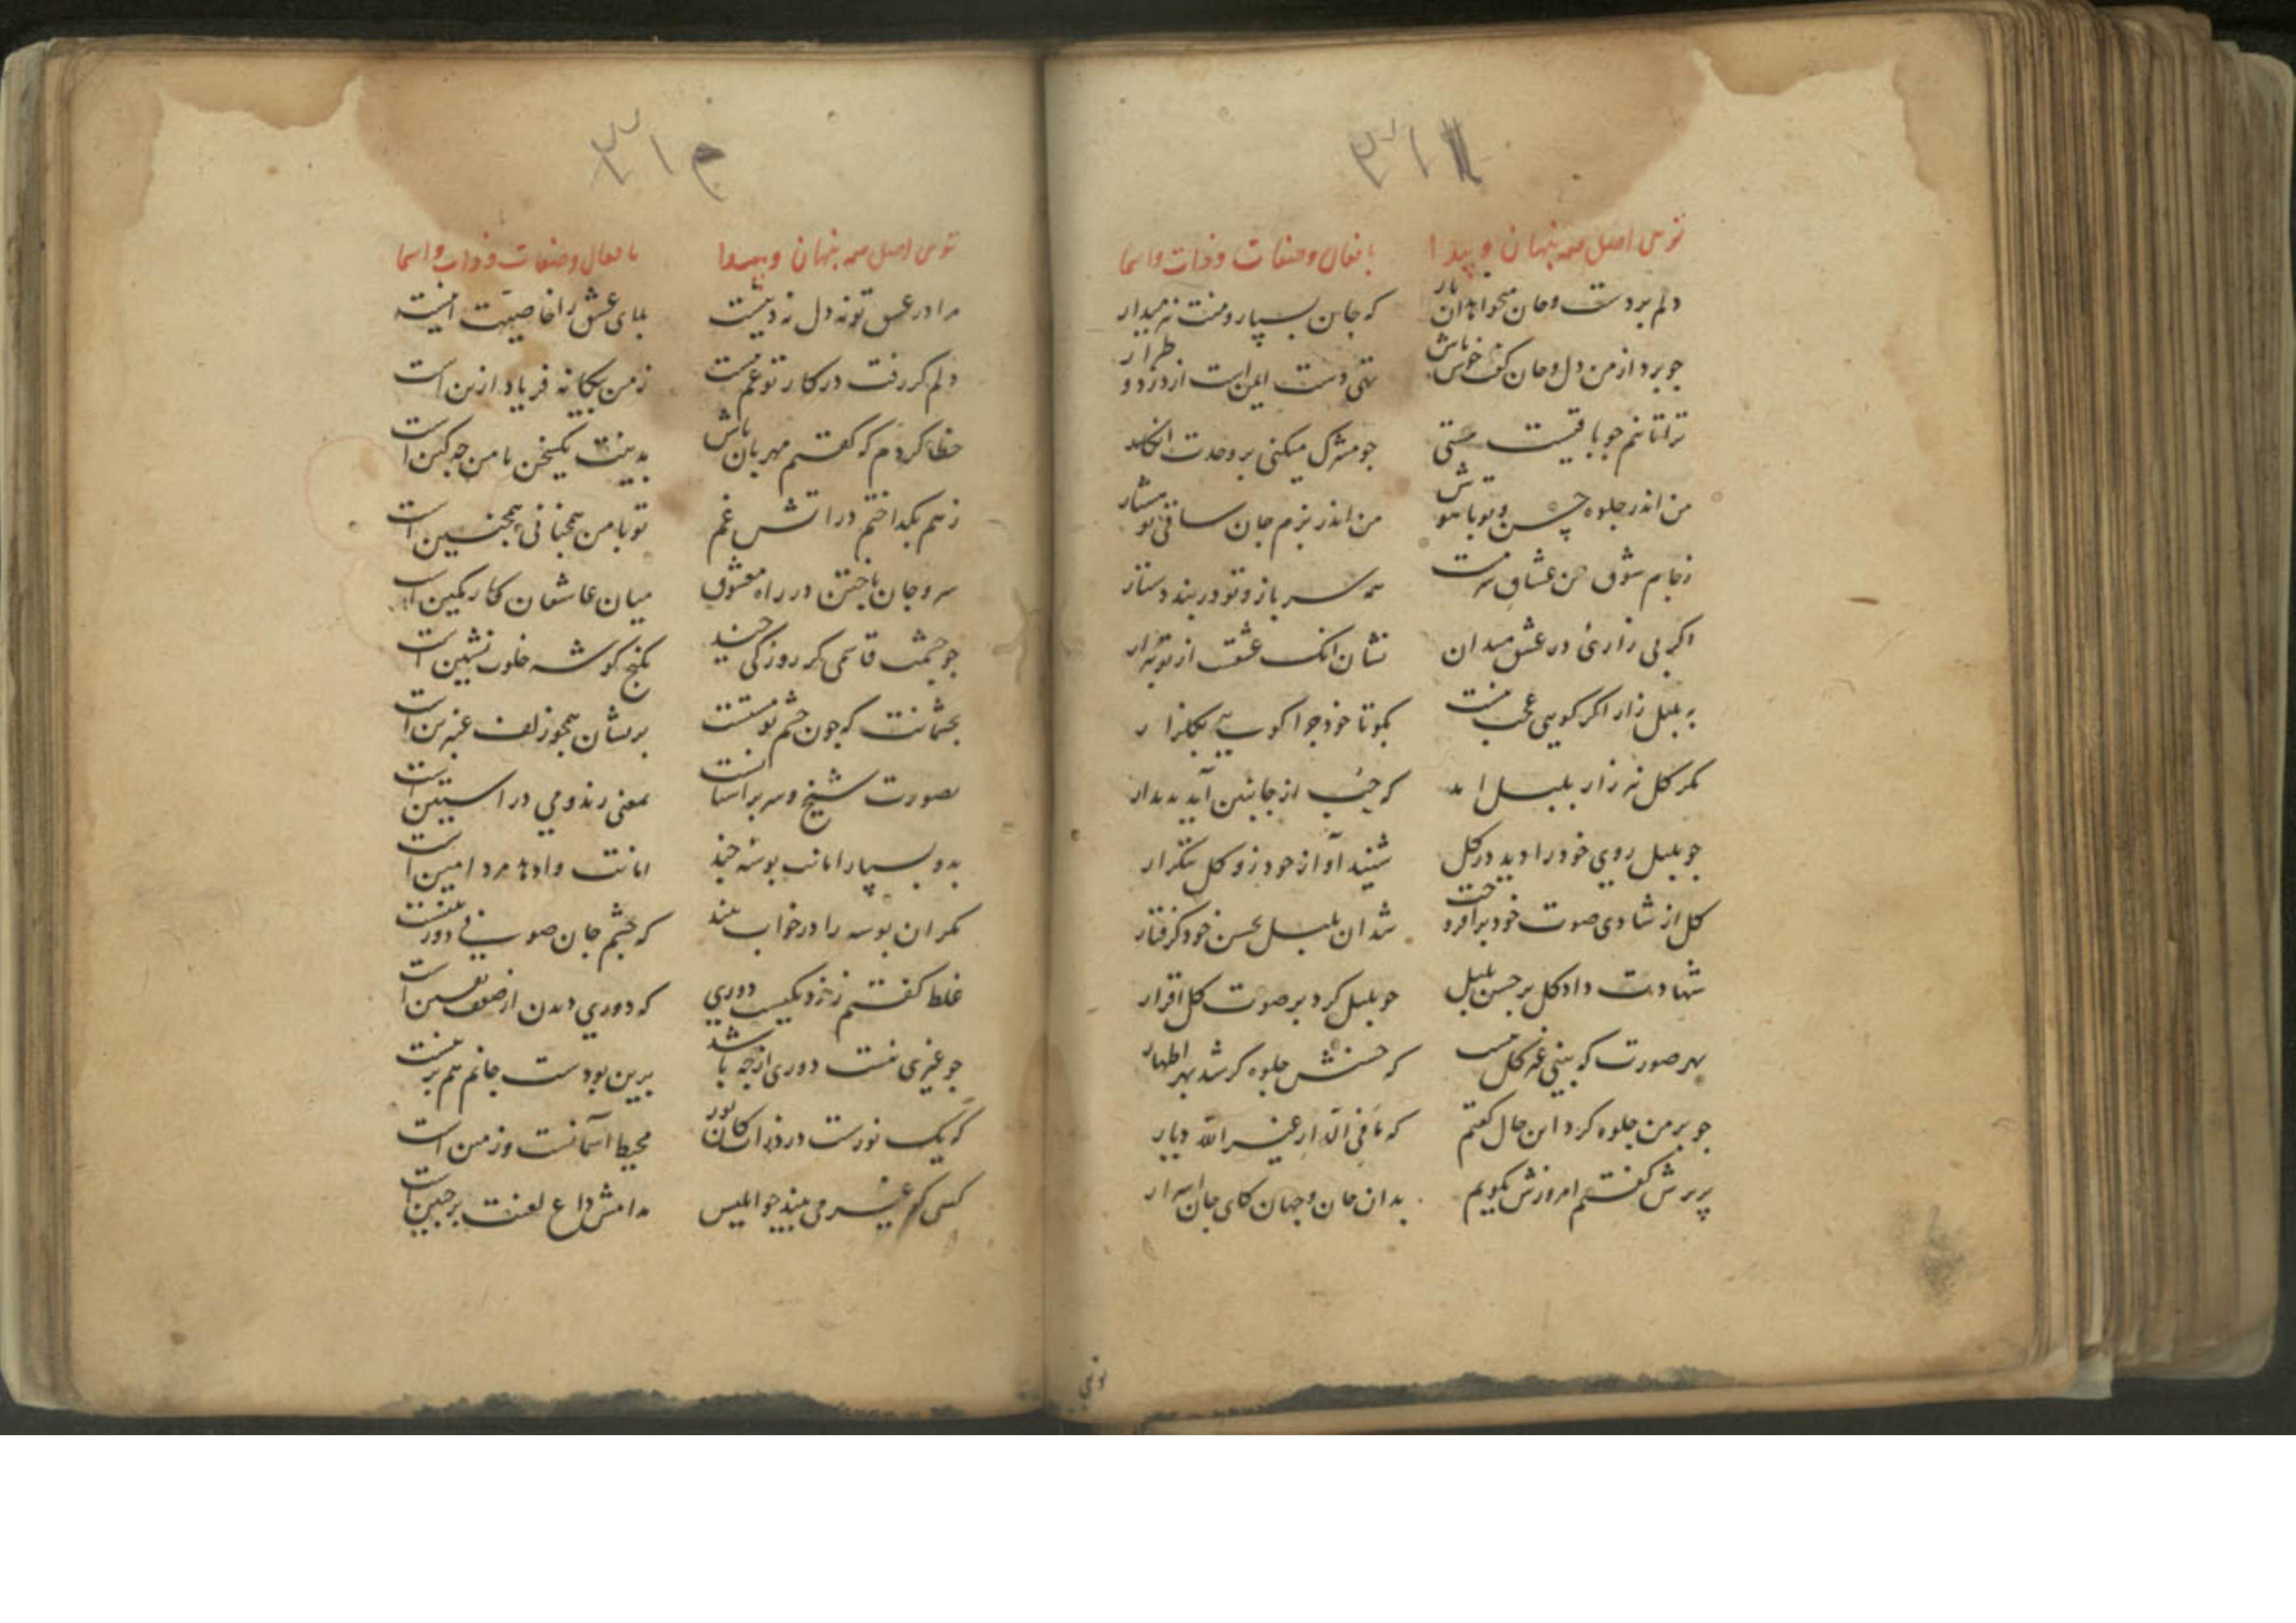 ۳۱
توی اصل همه پنهان و پیدا بافعال و صفات و ذات و اسما
دلم بردست و جان میخواهد آن یار که جان بسپار و منت نیز میدار
جو برد از من دل و جان گفت خوش باش تهی دست ایمن است از درد و طرار
ترا تا نم جو باقیست هستی جو مشرک میکنی بر وحدت انکار
من اندر جلوه حسن و تو باهوش من اندر بزم جان ساقی تو هشیار
ز جام شوق من عشاق سرمست همه سرباز و تو در بند دستار
اگر بی زارئ در عشق میدان نشان آنک عشق از تو بیزار
به بلبل زار اگر کویی عجب نیست بکو تا خود جرا کویی بکلزار
مگر کل نه زار بلبل امد که حب از جانبین آید بدیدار
جو بلبل روی خود را دید در کل شنید آواز خود زو کل بتکرار
کل از شادی صوت خود برافروخت شد ان بلبل بحسن خود کرفتار
شهادت داد کل بر حسن بلبل جو بلبل کرد بر صوت کل اقرار
بهر صورت که بینی غیر کل نیست که حسنش جلوه کر شد بهر اظهار
جو بر من جلوه کرد این حال کفتم که ما فی الدار غیر الله دیار
پریرش کفتم امروزش بکویم بدان جان و جهان کای جان اسرار
تویی
۳۱
توی اصل همه پنهان و پیدا بافعال و صفات و ذات و اسما
مرا در عشق تو نه دل نه دینست بلای عشق را خاصیت اینست
دلم کر رفت در کار تو غم نیست ز من بیکانه فریاد ازین است
خطا کردم که کفتم مهربان باش بدینت یکسخن با من جه کین است
ز هم بکداختم در اتش غم تو با من همجنانی همجنین است
سر و جان باختن در راه معشوق میان عاشقان کار کمین است
جو جشمت قاسمی کر روزکی جند بکنج کوشه خلوت نشین است
بجشمانت که جون جشم تو مستست بریشان همجو زلف عنبرین است
بصورت شیخ و سر بر استانست بمعنی رند و می در استین است
بدو بسپار امانت بوسه جند امانت داده مرد امین است
مکر ان بوسه را در خواب بیند که جشم جان صوفی دوربینست
غلط کفتم ز نزدیکیست دوری که دوری دیدن از ضعف یقین است
جو غیری نیست دوری از جه باشد برین بودست جانم هم برینست
که یک نورست در ذرات کان نور محیط آسمانست و زمین است
کسی کو غیر می بیند جو ابلیس مدامش داغ لعنت بر جبین است